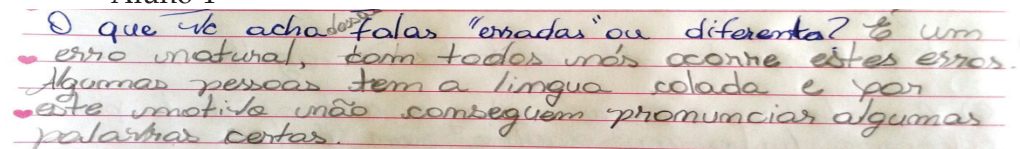 O que vc acha dessas falas "erradas" ou diferenta? é um
erro natural, com todos nós oconre estes erros.
Algumas pessoas tem a lingua colada e por
este motivo não conseguem pronuncias algumas
palavras certas.